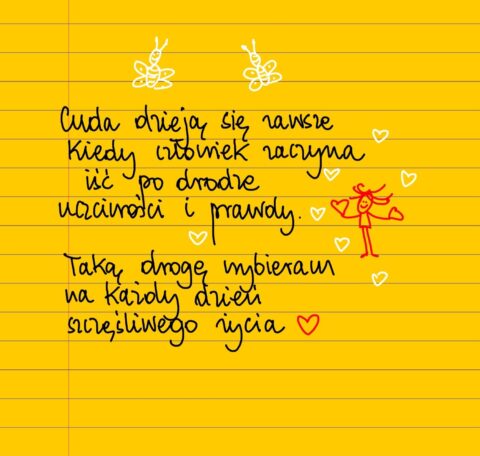 Cuda dzieją się zawsze
kiedy człowiek zaczyna
iść po drodze
uczciwości i prawdy.
Taką drogę wybieram
na każdy dzień
szczęśliwego życia